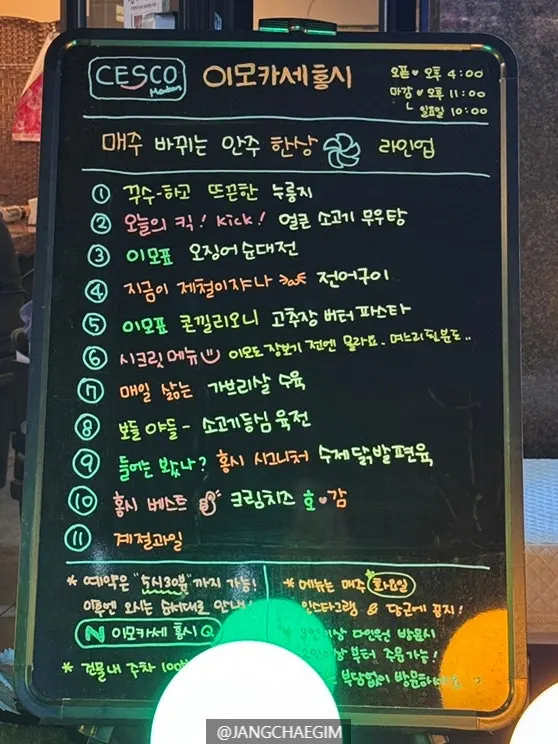 CESCO
Members
이모카세 홍시
오픈 ♥ 오후 4:00
마감 ♥ 오후 11:00
ㄴ 일요일 10:00
매주 바뀌는 안주 한상 라인업
① 꾸수-하고 뜨끈한 누룽지
② 오늘의 킥! Kick! 얼큰 소고기 무우탕
③ 이모표 오징어순대전
④ 지금이 제철이쟈나 전어구이
⑤ 이모표 콘낄리오니 고추장 버터 파스타
⑥ 시크릿메뉴 이모도 장보기 전엔 몰라요. 며느리
⑰ 매일 삶는 가브리살 수육
⑧ 보들야들- 소고기등심 육전
⑨ 들어는 봤나? 홍시 시그니처 수제 닭발편육
⑩ 홍시 베스트 크림치즈 호♥감
⑪ 계절과일
* 예약은 "5시30분" 까지 가능!
이후엔 오시는 순서대로 안내!
N 이모카세 홍시 Q
* 건물내 주차
* 메뉴는 매주 화요일
인스타그램 & 당근에 공지!
* 이상 다인원 방문시
이상 부터 주문가능!
부담없이
@JANGCHAEGIM